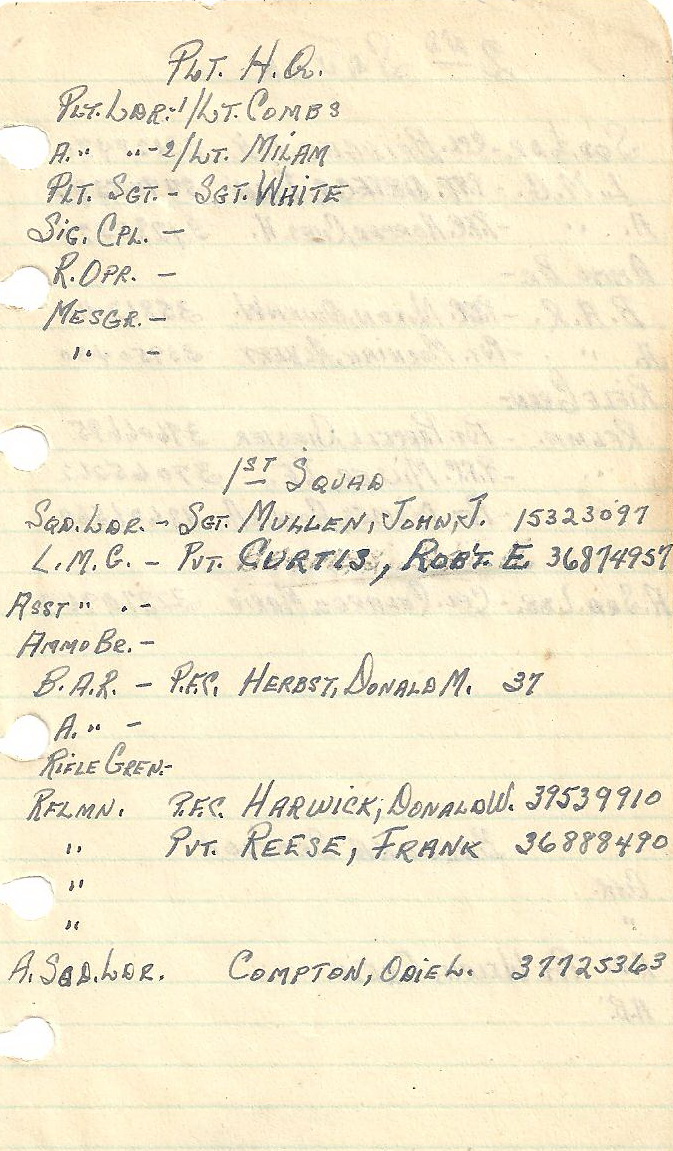 PLT. H.Q.
PLT. LDR.-1/LT. COMBS
A. " " -2/LT. MILAM
PLT. SGT. - SGT. WHITE
SIG. CPL. -
R. OPR. -
MESGR. -
" -
1ST SQUAD
SQD. LDR. - SGT. MULLEN, JOHN, J. 15323097
L.M.G. - PVT. CURTIS, ROB'T. E 36874957
ASST " . -
AMMO BR. -
B.A.R. - P.F.C. HERBST, DONALD M. 37
A. " -
RIFLE GREN.-
RFLMN. P.F.C. HARWICK, DONALD W. 39539910
" PVT. REESE, FRANK 36888490
"
"
A. SQD. LDR. COMPTON, ODIE L. 37725363